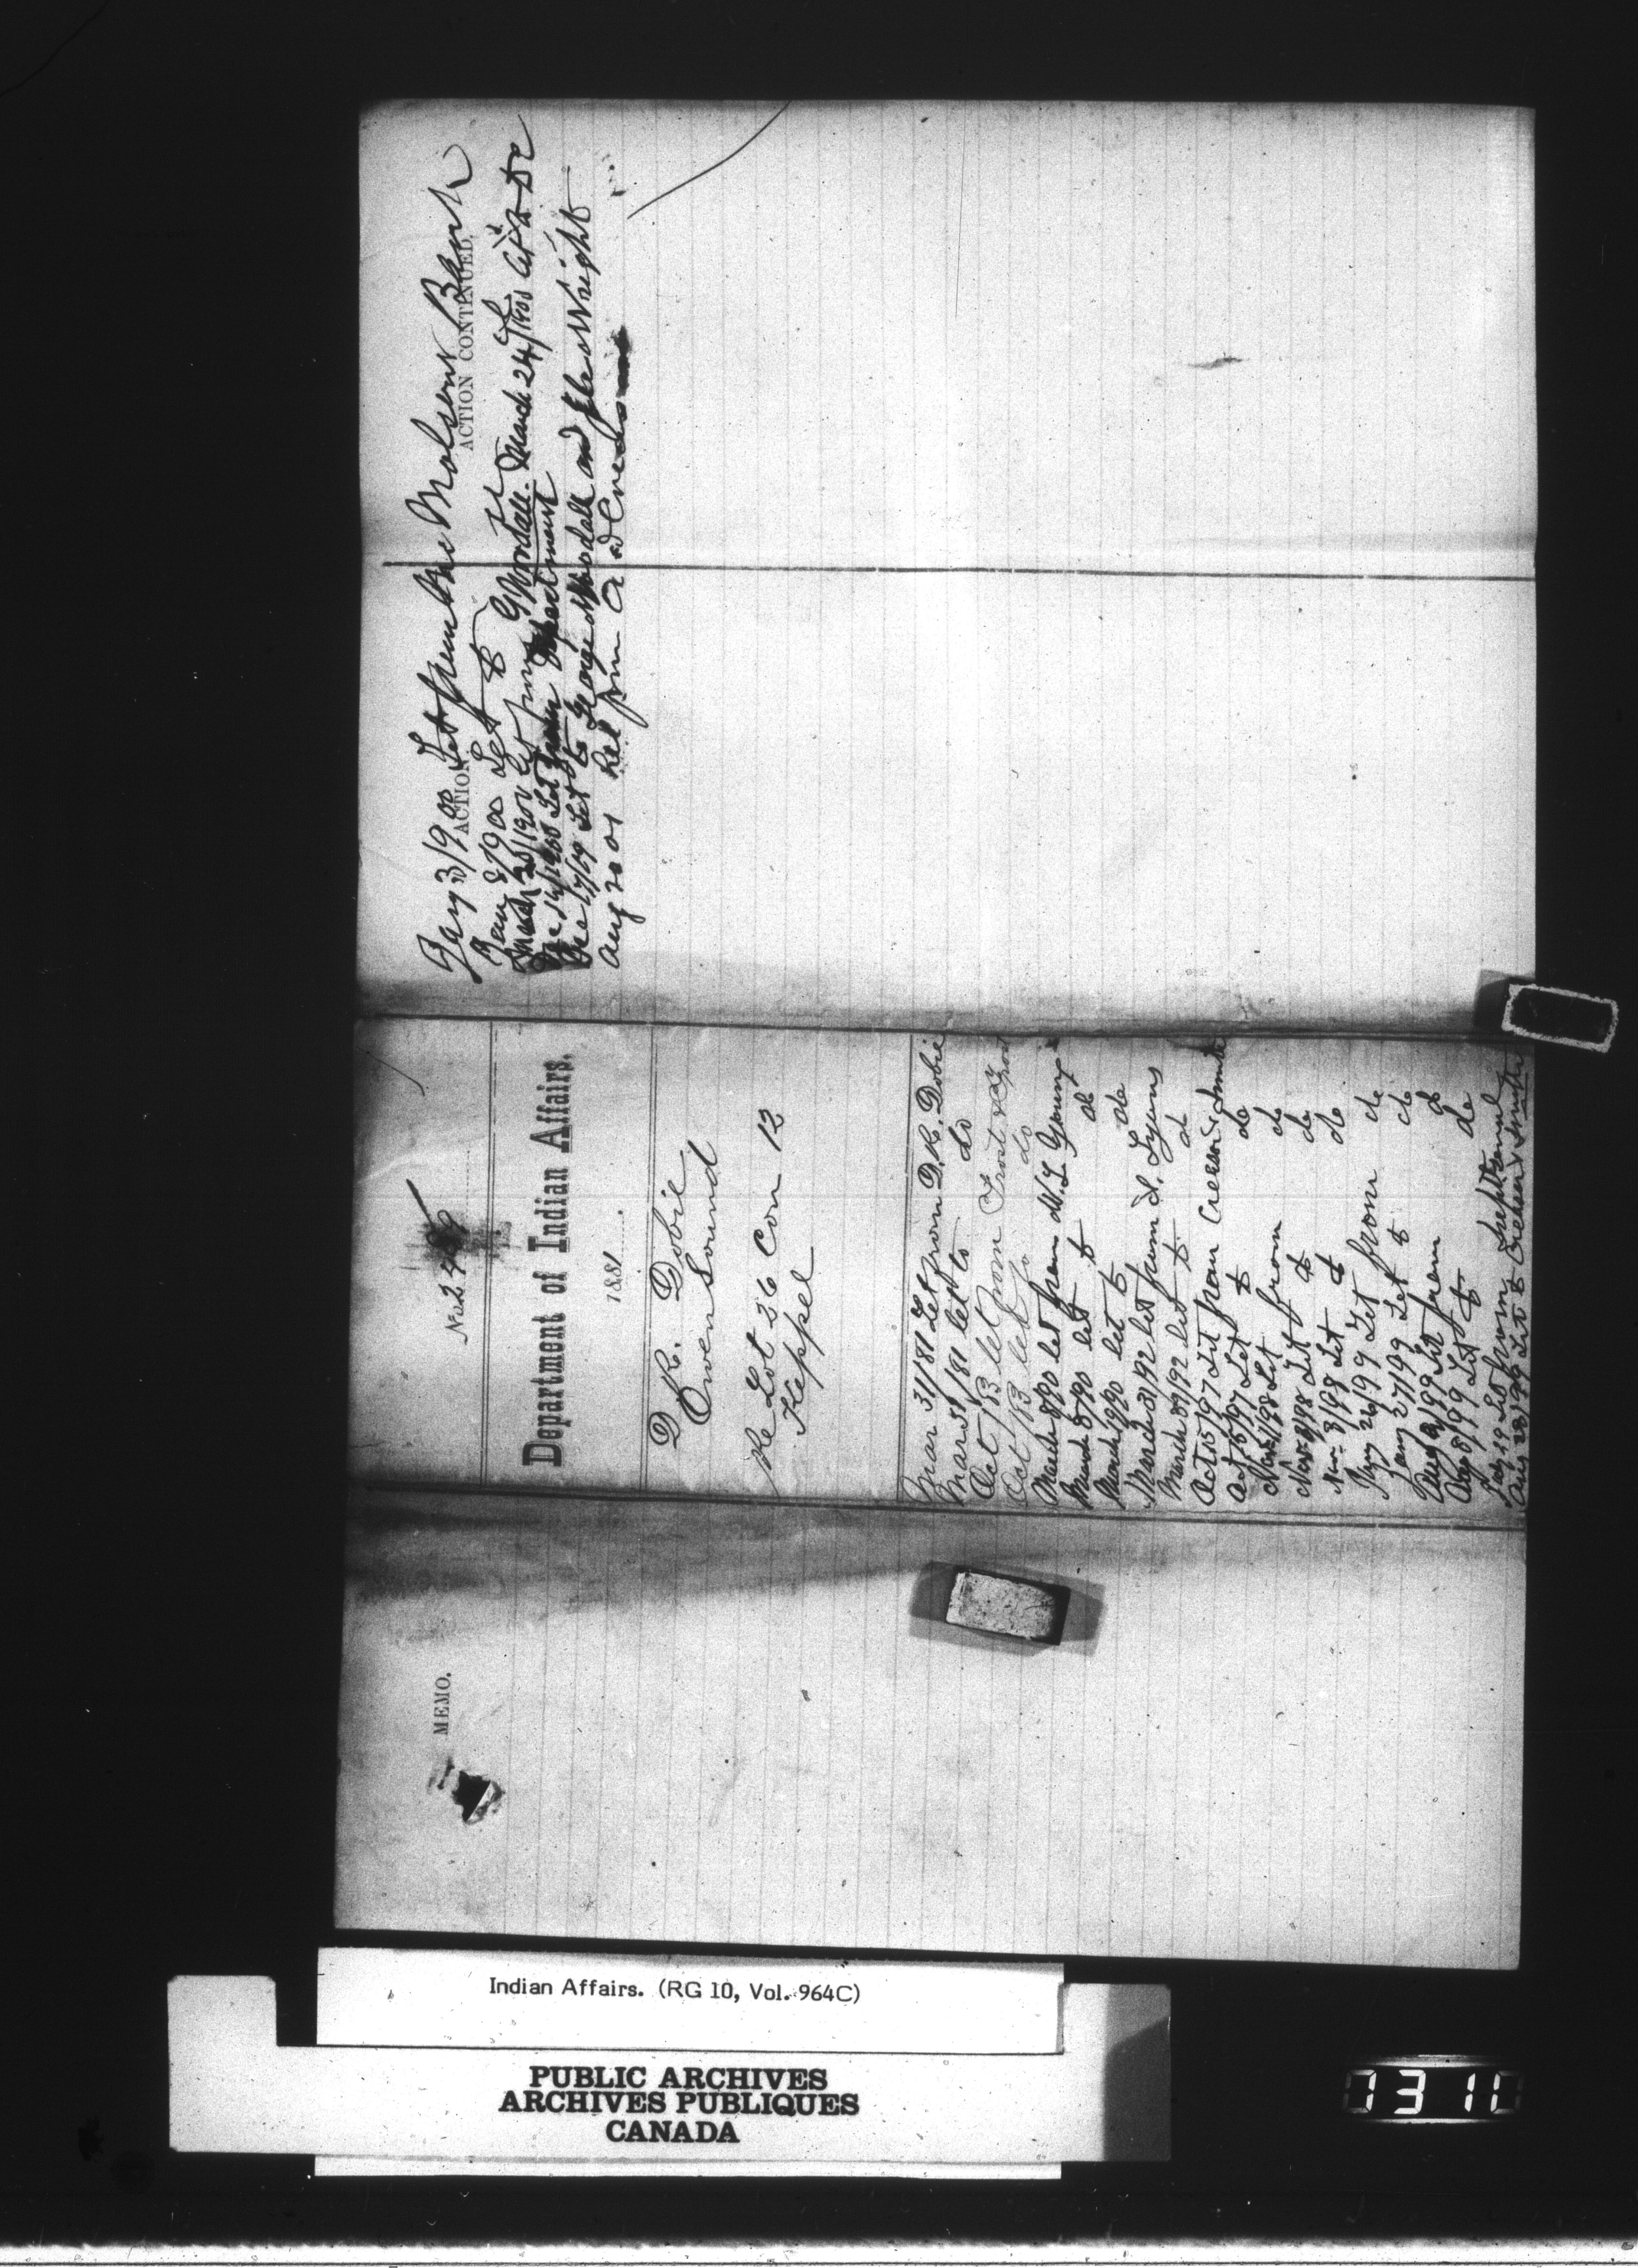 MEMO.
No 24
Department of Indian Affairs.
1881
D. R. Dobie
Owen Sound
Re Lot 36 Con 12
Keppel
Mar 31/81 Let from D. R. Dobie
Mar 31/81 let to do
Oct let from Frost & Frost
Oct let to do
March 8/90 let from M. L. Young
March 8/90 let to do
March 19/90 let to do
March 31/92 let from I. Lyons
March 39/92 let to do
Oct 15/97 Let from Creasor & Smith
Oct 15/97 Let to do
Nov 1/98 Let from do
Nov 8/98 Let to do
Nov 8/98 Let to do
Jany 26/99 Let from do
Jany 27/99 Let to do
Aug 2/99 Let from do
Aug 8/99 Let to do
Let from
Aug 28/99 Let to Creasor & Smith
ACTION
ACTION CONTINUED.
Jany 3/900 Let from the Molsons Bank
Jany 8/900 Let to
March 20/1900 let from G. Woodall. March 24/1900
Let from Department
Dec 17/09 Let to George Woodall and Wright
Aug 20 01 Rel from
Indian Affairs. (RG 10, Vol. 964C)
PUBLIC ARCHIVES
ARCHIVES PUBLIQUES
CANADA
1311